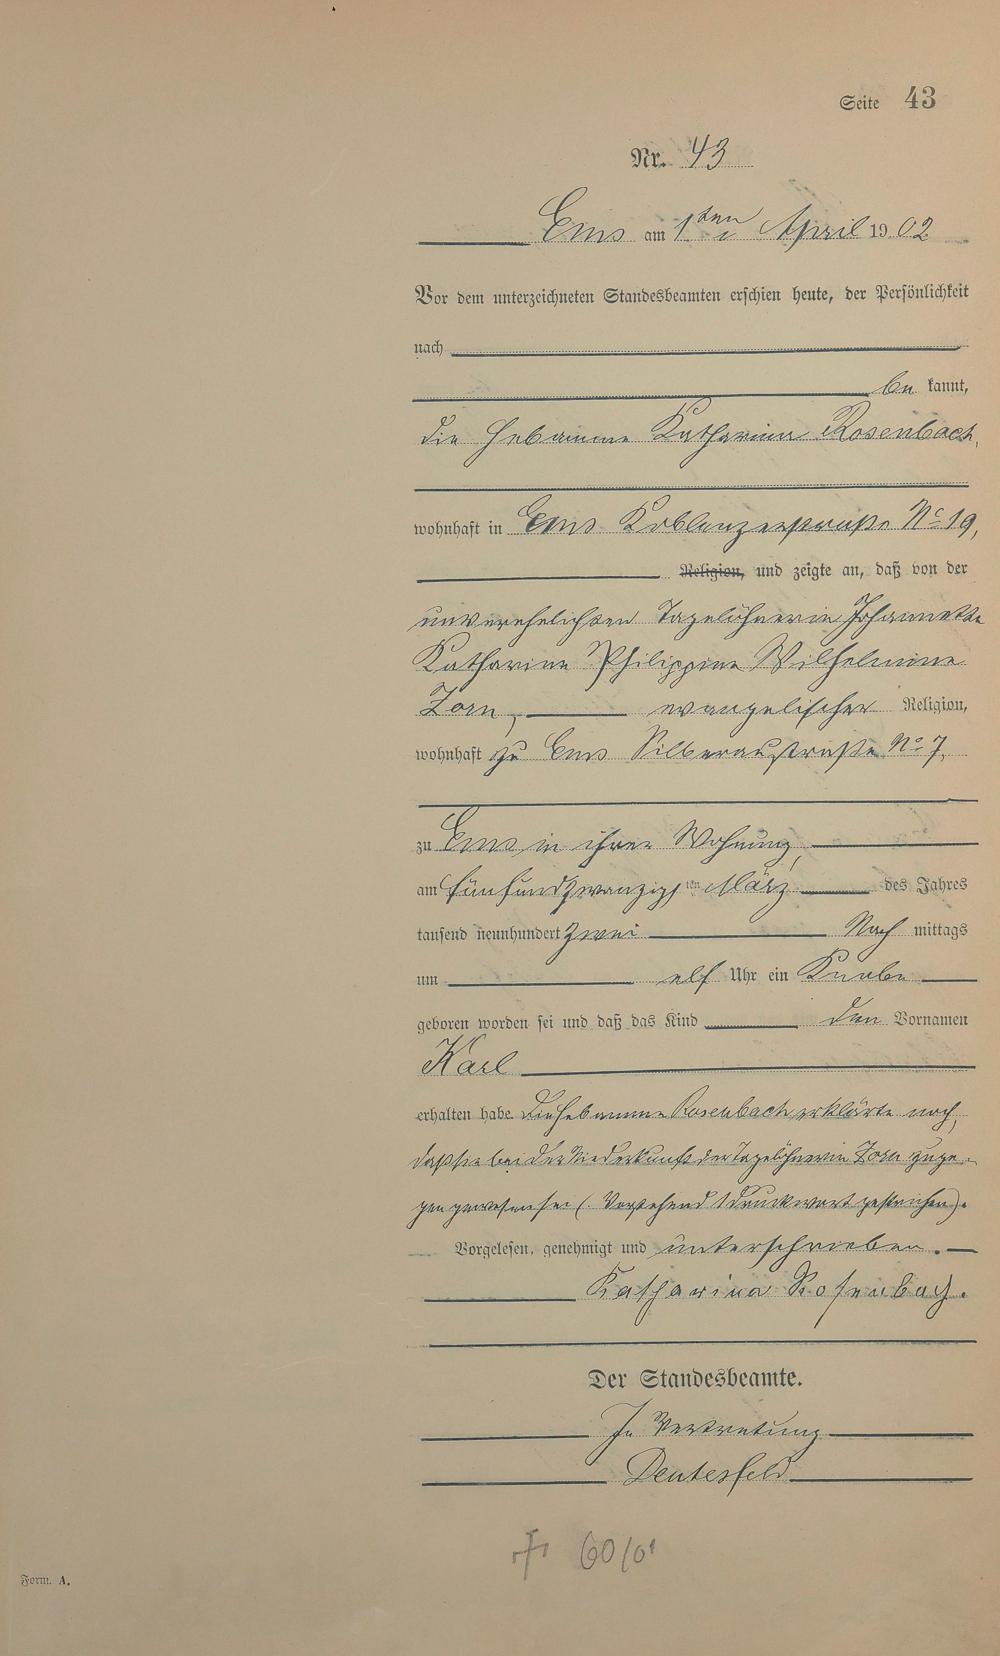 Seite 43
Nr. 43
Ems am 1ten April 1902
Vor dem unterzeichneten Standesbeamten erschien heute, der Persönlichkeit
nach
be kannt,
die Hebamme Katharina Rosenbach,
wohnhaft in Ems Koblenzerstraße No 19,
Religion, und zeigte an, daß von der
unverehelichten Tagelöhnerin Johannette
Katharine Philippine Wilhelmine
Zorn, evangelischer Religion,
wohnhaft zu Ems Silberaustraße No 7,
zu Ems in ihrer Wohnung,
am fünfundzwanzigsten März des Jahres
tausend neunhundert zwei Nach mittags
um elf Uhr ein Knabe
geboren worden sei und daß das Kind den Vornamen
Karl
erhalten habe. Die Hebamme Rosenbach erklärte noch,
daß sie bei der Niederkunft der Tagelöhnerin Zorn zuge-
gen gewesen sei (Vorstehend 1 Druckwort gestrichen).
Vorgelesen, genehmigt und unterschrieben.
Katharina Rosenbach.
Der Standesbeamte.
In Vertretung
Deutesfeld
Form. A.